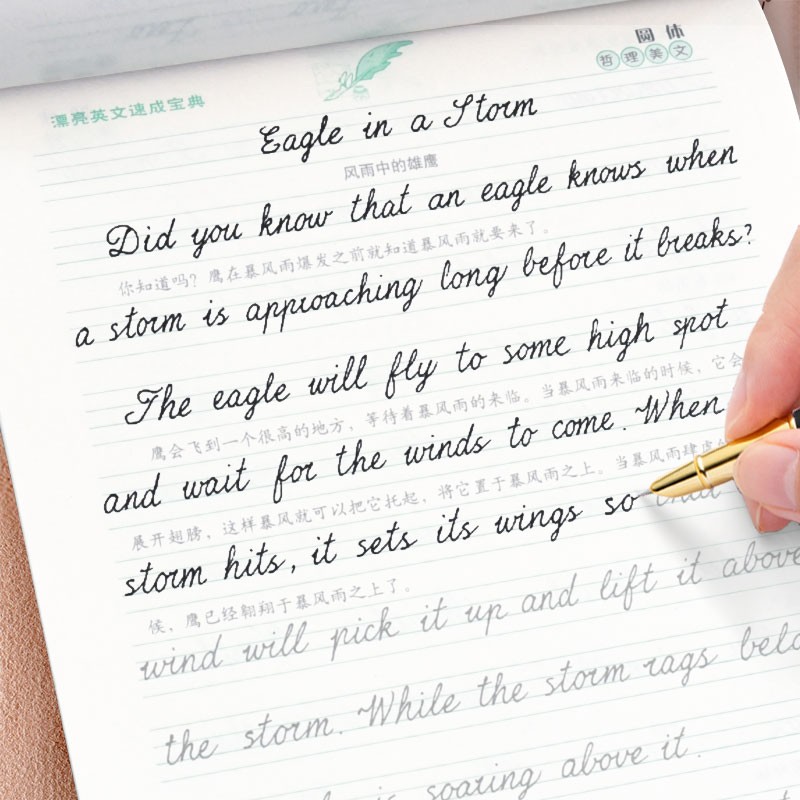 圆体
哲理美文
漂亮英文速成宝典
Eagle in a Storm
风雨中的雄鹰
Did you know that an eagle knows when
你知道吗？鹰在暴风雨爆发之前就知道暴风雨就要来了。
a storm is approaching long before it breaks?
The eagle will fly to some high spot
鹰会飞到一个很高的地方，等待着暴风雨的来临。当暴风雨来临的时候，它会
and wait for the winds to come. When
展开翅膀，这样暴风就可以把它托起，将它置于暴风雨之上。当暴风雨肆虐
storm hits, it sets its wings so that
候，鹰已经翱翔于暴风雨之上了。
wind will pick it up and lift it above
the storm. While the storm rags
soaring above it.